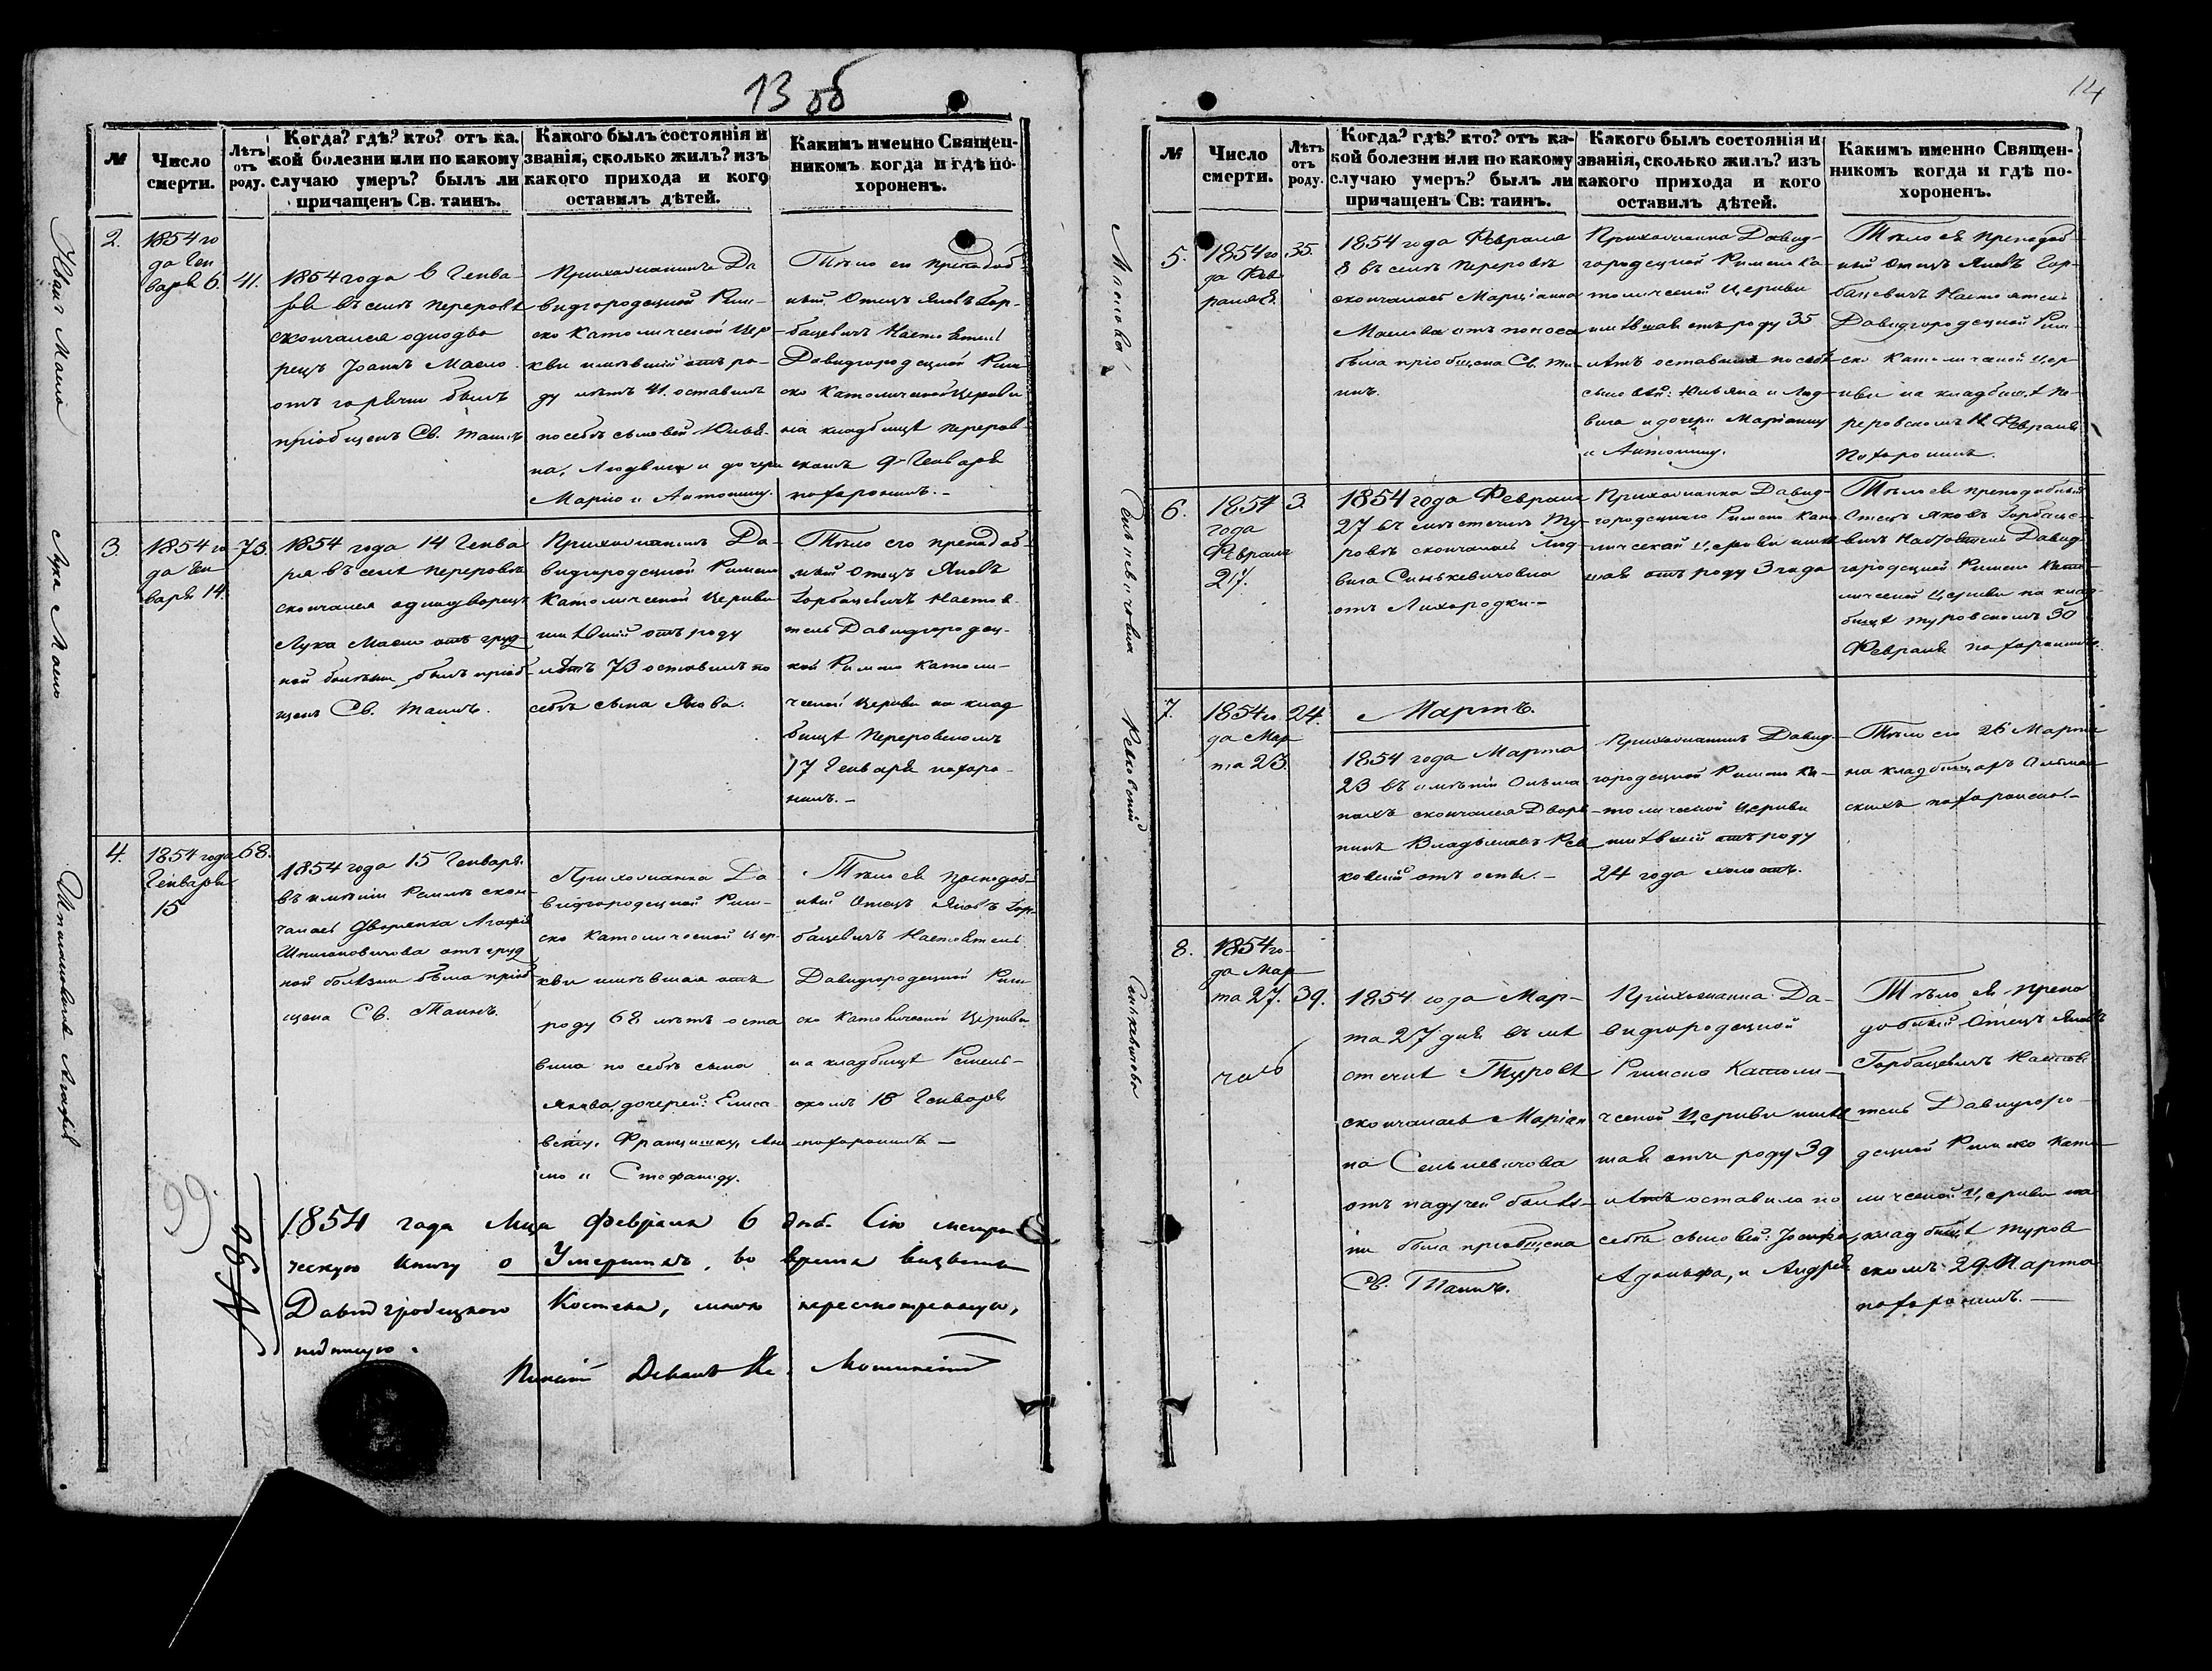 13 об
№
Число
смерти.
Лѣтъ
отъ
роду.
Когда? гдѣ? кто? отъ ка-
кой болезни или по какому
случаю умеръ? былъ ли
причащенъ Св. таинъ.
Какого былъ состоянія и
званія, сколько жилъ? изъ
какого прихода и кого
оставилъ дѣтей.
Какимъ именно Священ-
никомъ когда и гдѣ по-
хороненъ.
Иванъ Масло
2.
1854 го
да Ген
варя 6.
41.
1854 года 6 Генва
ря въ селѣ Переровѣ
скончался однодво
рецъ Іоаннъ Масло
отъ горячки былъ
пріобщенъ Св. Таинъ
Прихожанинъ Да
видгородецкой Рим-
ско Католической Цер
кви имѣвшій отъ ро-
ду лѣтъ 41. оставилъ
по себѣ сыновей Юлья-
на, Людвика и дочери
Марію и Антонину.
Тѣло его преподоб
ный Отецъ Яковъ Гор-
бацевичъ Настоятель
Давидгородецкой Рим
ско Католической Церкви
на кладбищѣ Переров-
скомъ 9 Генваря
похоронилъ.-
Лука Масло
3.
1854 го
да Ген
варя 14.
73.
1854 года 14 Генва
ря въ селѣ Переровѣ
скончался однодворецъ
Лука Масло отъ груд
ной болѣзни, былъ пріоб-
щенъ Св. Таинъ.
Прихожанинъ Да-
видгородецкой Римско
Католической Церкви
имѣвшій отъ роду
лѣтъ 73 оставилъ по
себѣ сына Якова.
Тѣло его преподоб
ный Отецъ Яковъ
Горбацевичъ Настоя
тель Давидгородец-
кой Римско Католи-
ческой Церкви на клад
бищѣ Переровскомъ
17 Генваря похоро-
нилъ.-
4.
1854 года
Генваря
15
68.
1854 года 15 Генваря
въ имѣніи скон-
чалась Дворянка Агафія
Шпилановичова отъ груд
ной болѣзни была пріоб
щена Св. Таинъ.
Прихожанка Да
видгородецкой Рим-
ско Католической Цер-
кви имѣвшая отъ
роду 68 лѣтъ оста
вила по себѣ сына
Якова, дочерей: Елиса-
вету, Францишку, Ан
ну и Стефаниду.
Тѣло ея преподоб-
ный Отецъ Яковъ Гор-
бацевичъ Настоятель
Давидгородецкой Рим
ско Католической Церкви
на кладбищѣ
скомъ 18 Генваря
похоронилъ -
99.
№ 90
1854 года Мца Февраля 6 дня. Сію метри
ческую книгу о Умершихъ, во время визыты
Давидгродецкаго Костела, мною пересмотренную,
подписую.
Пинскій Деканъ Кс.
14
№
Число
смерти.
Лѣтъ
отъ
роду.
Когда? гдѣ? кто? отъ ка-
кой болезни или по какому
случаю умеръ? былъ ли
причащенъ Св: таинъ.
Какого былъ состоянія и
званія, сколько жилъ? изъ
какого прихода и кого
оставилъ дѣтей.
Какимъ именно Священ-
никомъ когда и гдѣ по-
хороненъ.
5.
1854 го
да Фев
раля 8.
35.
1854 года Февраля
8 въ селѣ Переровѣ
скончалась Маріанна
Маслова отъ поноса
была пріобщена Св. Та-
инъ.
Прихожанка Давид-
городецкой Римско Ка
толической Церкви
имѣвшая отъ роду 35
лѣтъ оставила по себѣ
сыновей: Юльяна и Люд-
вика и дочери Маріанну
и Антонину.
Тѣло ея преподоб
ный Отецъ Яковъ Гор
бацевичъ Настоятель
Давидгородецкой Рим-
ско Католической Цер
кви на кладбищѣ Пе-
реровскомъ 11 Февраля
похоронилъ.
6.
1854
года
Февраля
27.
3.
1854 года Февраля
27 въ мѣстечкѣ Ту-
ровѣ скончалась Люд
вика Синькевичовна
отъ Лихорадки.-
Прихожанка Давид-
городецкаго Римско Като
лической Церкви имѣв
шая отъ роду 3 года
Тѣло ея преподобный
Отецъ Яковъ Горбаце-
вичъ Настоятель Давид
городецкой Римско Като
лической Церкви на клад-
бищѣ Туровскомъ 30
Февраля похоронилъ.
Ревковскій
7.
1854 го
да Мар
та 23.
24.
Мартъ.
1854 года Марта
23 въ имѣніи Ольма
нахъ скончался Дворя
нинъ Владыславъ Рев
ковскій отъ оспы.-
Прихожанинъ Давид-
городецкой Римско Ка-
толической Церкви
имѣвшій отъ роду
24 года холостъ.
Тѣло его 26 Марта
на кладбищахъ Ольман
скихъ похоронено.-
8.
1854 го-
да Мар
та 27.
39.
1854 года Мар-
та 27 дня въ мѣ
стечкѣ Туровѣ
скончалась Маріан
на Сенькевичова
отъ падучей болѣз-
ни была пріобщена
Св. Таинъ.
Прихожанка Да-
видгородецкой
Римско Католи-
ческой Церкви имѣв
шая отъ роду 39
лѣтъ оставила по
себѣ сыновей: Іосифа,
Адольфа, и Андрея
Тѣло ея препо
добный Отецъ Яковъ
Горбацевичъ Настоя
тель Давидгоро-
децкой Римско Като
лической Церкви на
кладбищѣ Туров
скомъ 29 Марта
похоронилъ. -